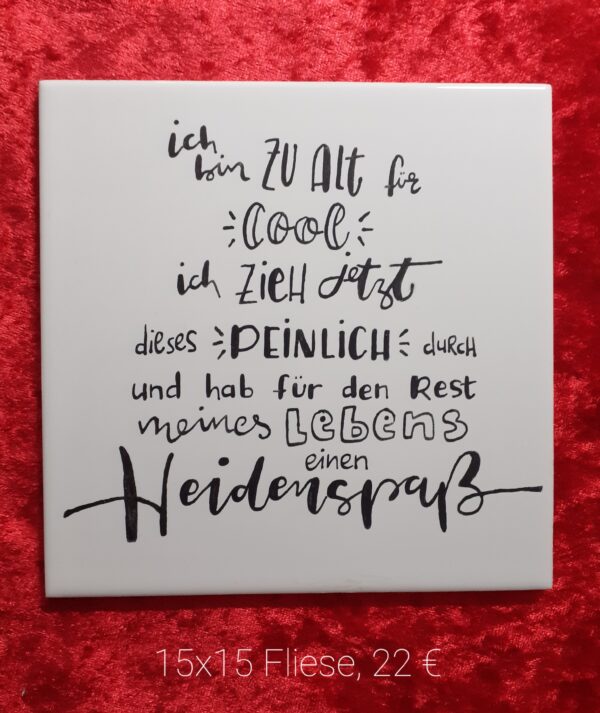 ich
bin ZU Alt für
COOL
ich ZIEH jetzt
dieses PEINLICH durch
und hab für den Rest
meines Lebens
einen
Heidenspaß
15x15 Fliese, 22 €